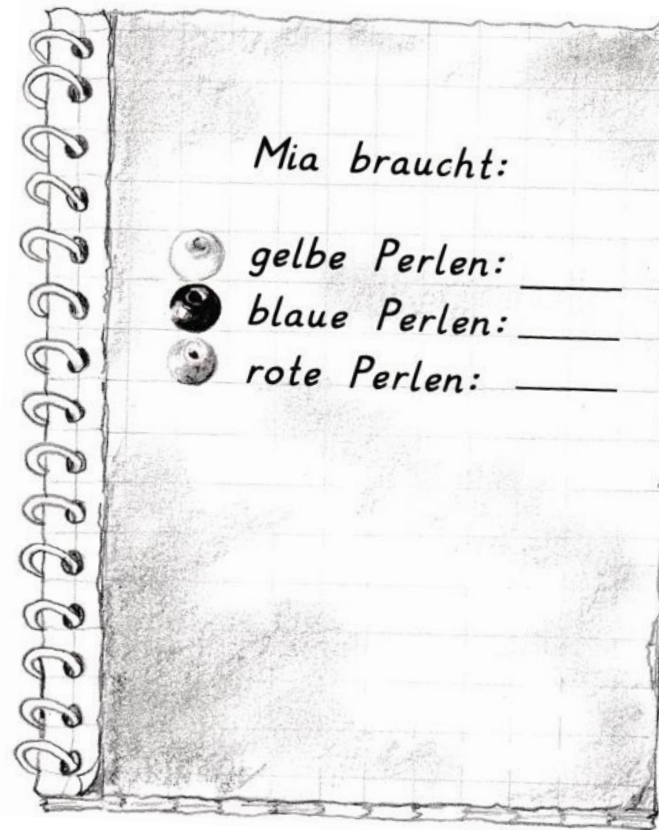 Mia braucht:
gelbe Perlen: ____
blaue Perlen: ____
rote Perlen: ____